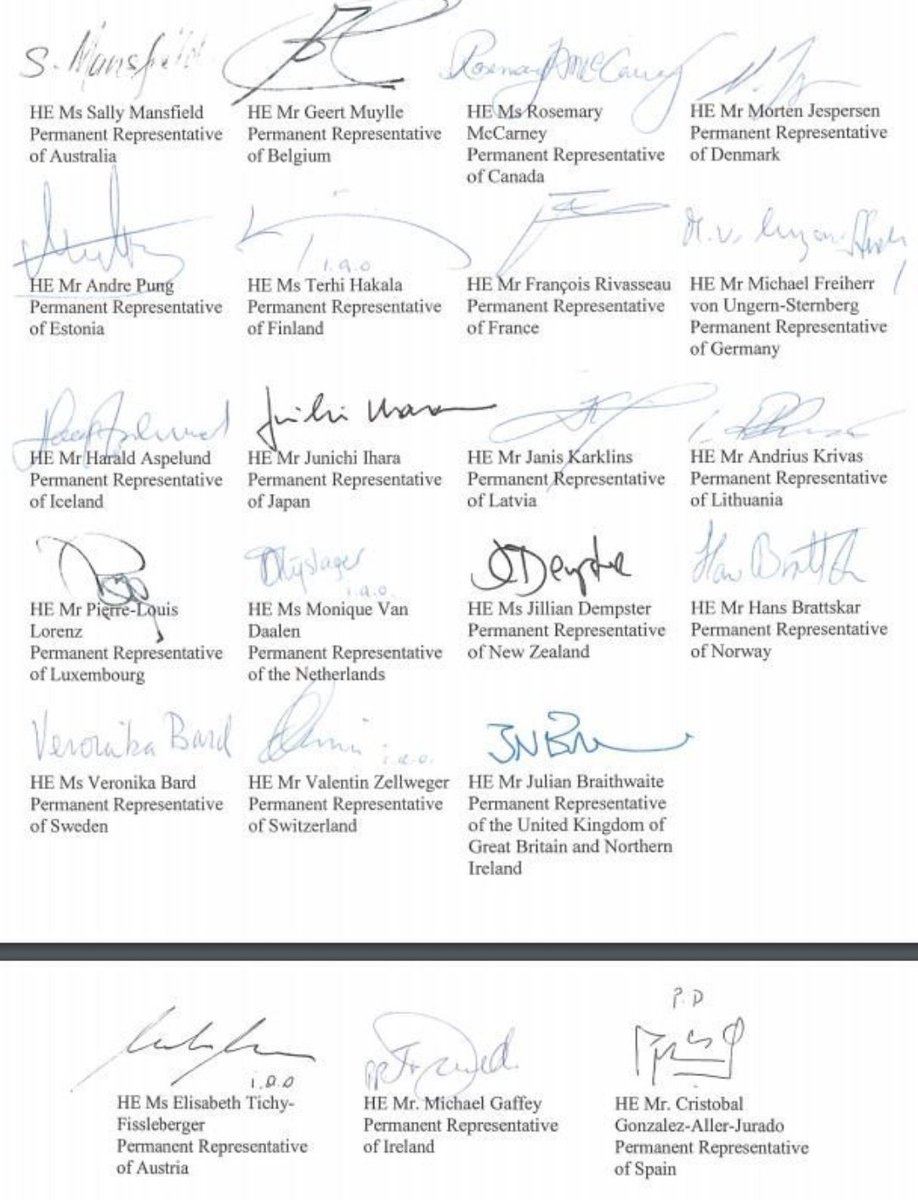 S. Mansfield
HE Ms Sally Mansfield
Permanent Representative
of Australia
HE Mr Geert Muylle
Permanent Representative
of Belgium
Rosemary McCarney
HE Ms Rosemary
McCarney
Permanent Representative
of Canada
HE Mr Morten Jespersen
Permanent Representative
of Denmark
HE Mr Andre Pung
Permanent Representative
of Estonia
i.a.o
HE Ms Terhi Hakala
Permanent Representative
of Finland
HE Mr François Rivasseau
Permanent Representative
of France
HE Mr Michael Freiherr
von Ungern-Sternberg
Permanent Representative
of Germany
HE Mr Harald Aspelund
Permanent Representative
of Iceland
HE Mr Junichi Ihara
Permanent Representative
of Japan
HE Mr Janis Karklins
Permanent Representative
of Latvia
HE Mr Andrius Krivas
Permanent Representative
of Lithuania
HE Mr Pierre-Louis
Lorenz
Permanent Representative
of Luxembourg
i.a.o.
HE Ms Monique Van
Daalen
Permanent Representative
of the Netherlands
HE Ms Jillian Dempster
Permanent Representative
of New Zealand
HE Mr Hans Brattskar
Permanent Representative
of Norway
Veronika Bard
HE Ms Veronika Bard
Permanent Representative
of Sweden
i.a.o.
HE Mr Valentin Zellweger
Permanent Representative
of Switzerland
HE Mr Julian Braithwaite
Permanent Representative
of the United Kingdom of
Great Britain and Northern
Ireland
i.a.o
HE Ms Elisabeth Tichy-
Fissleberger
Permanent Representative
of Austria
HE Mr. Michael Gaffey
Permanent Representative
of Ireland
P.D
HE Mr. Cristobal
Gonzalez-Aller-Jurado
Permanent Representative
of Spain